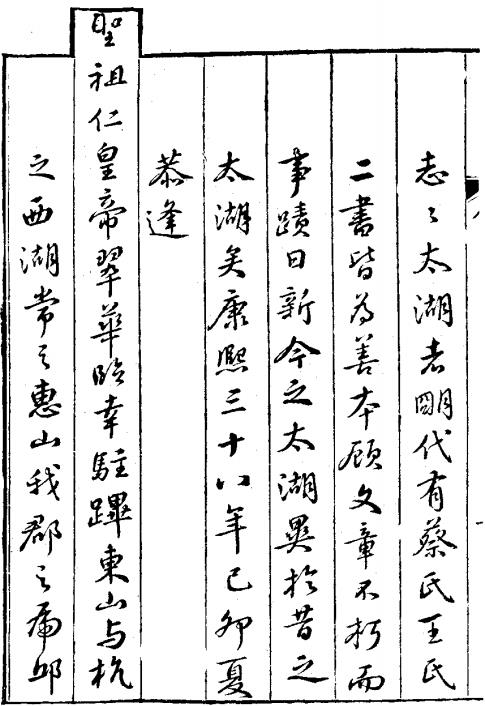 志之太湖者明代有蔡氏王氏
二書皆為善本顧文章不朽而
事蹟日新今之太湖異於昔之
太湖矣康熙三十八年己卯夏
恭逢
聖祖仁皇帝翠華臨幸駐蹕東山与杭
之西湖常之惠山我郡之虎邱